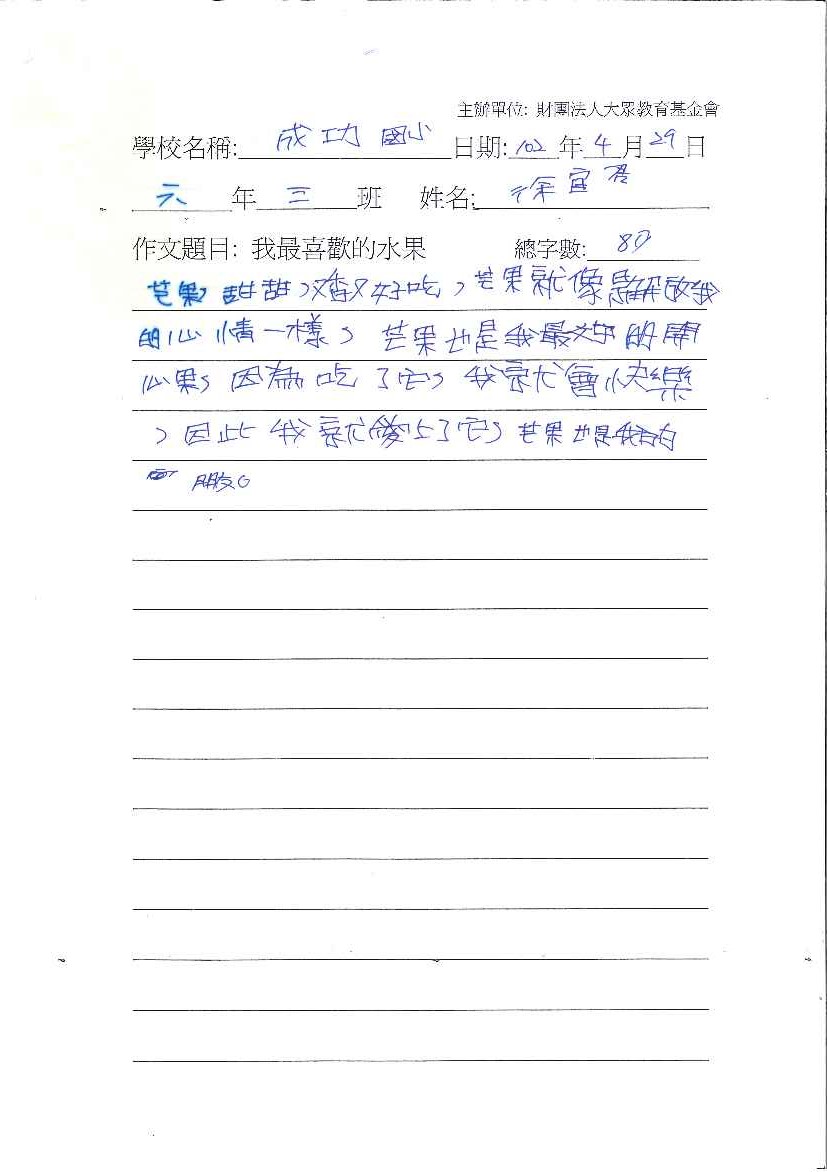 主辦單位: 財團法人大眾教育基金會
學校名稱: 成功國小 日期: 102 年 4 月 29 日
六 年 三 班 姓名: 徐宜君
作文題目: 我最喜歡的水果 總字數: 80
芒果甜甜,又香又好吃,芒果就像是解放我
的心情一樣,芒果也是我最好的開
心果,因為吃了它,我就會快樂
,因此我就愛上了它,芒果也是我的
朋友。